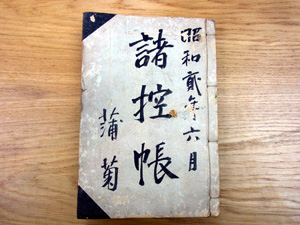 昭和貳年六月
諸控帳
蒲菊